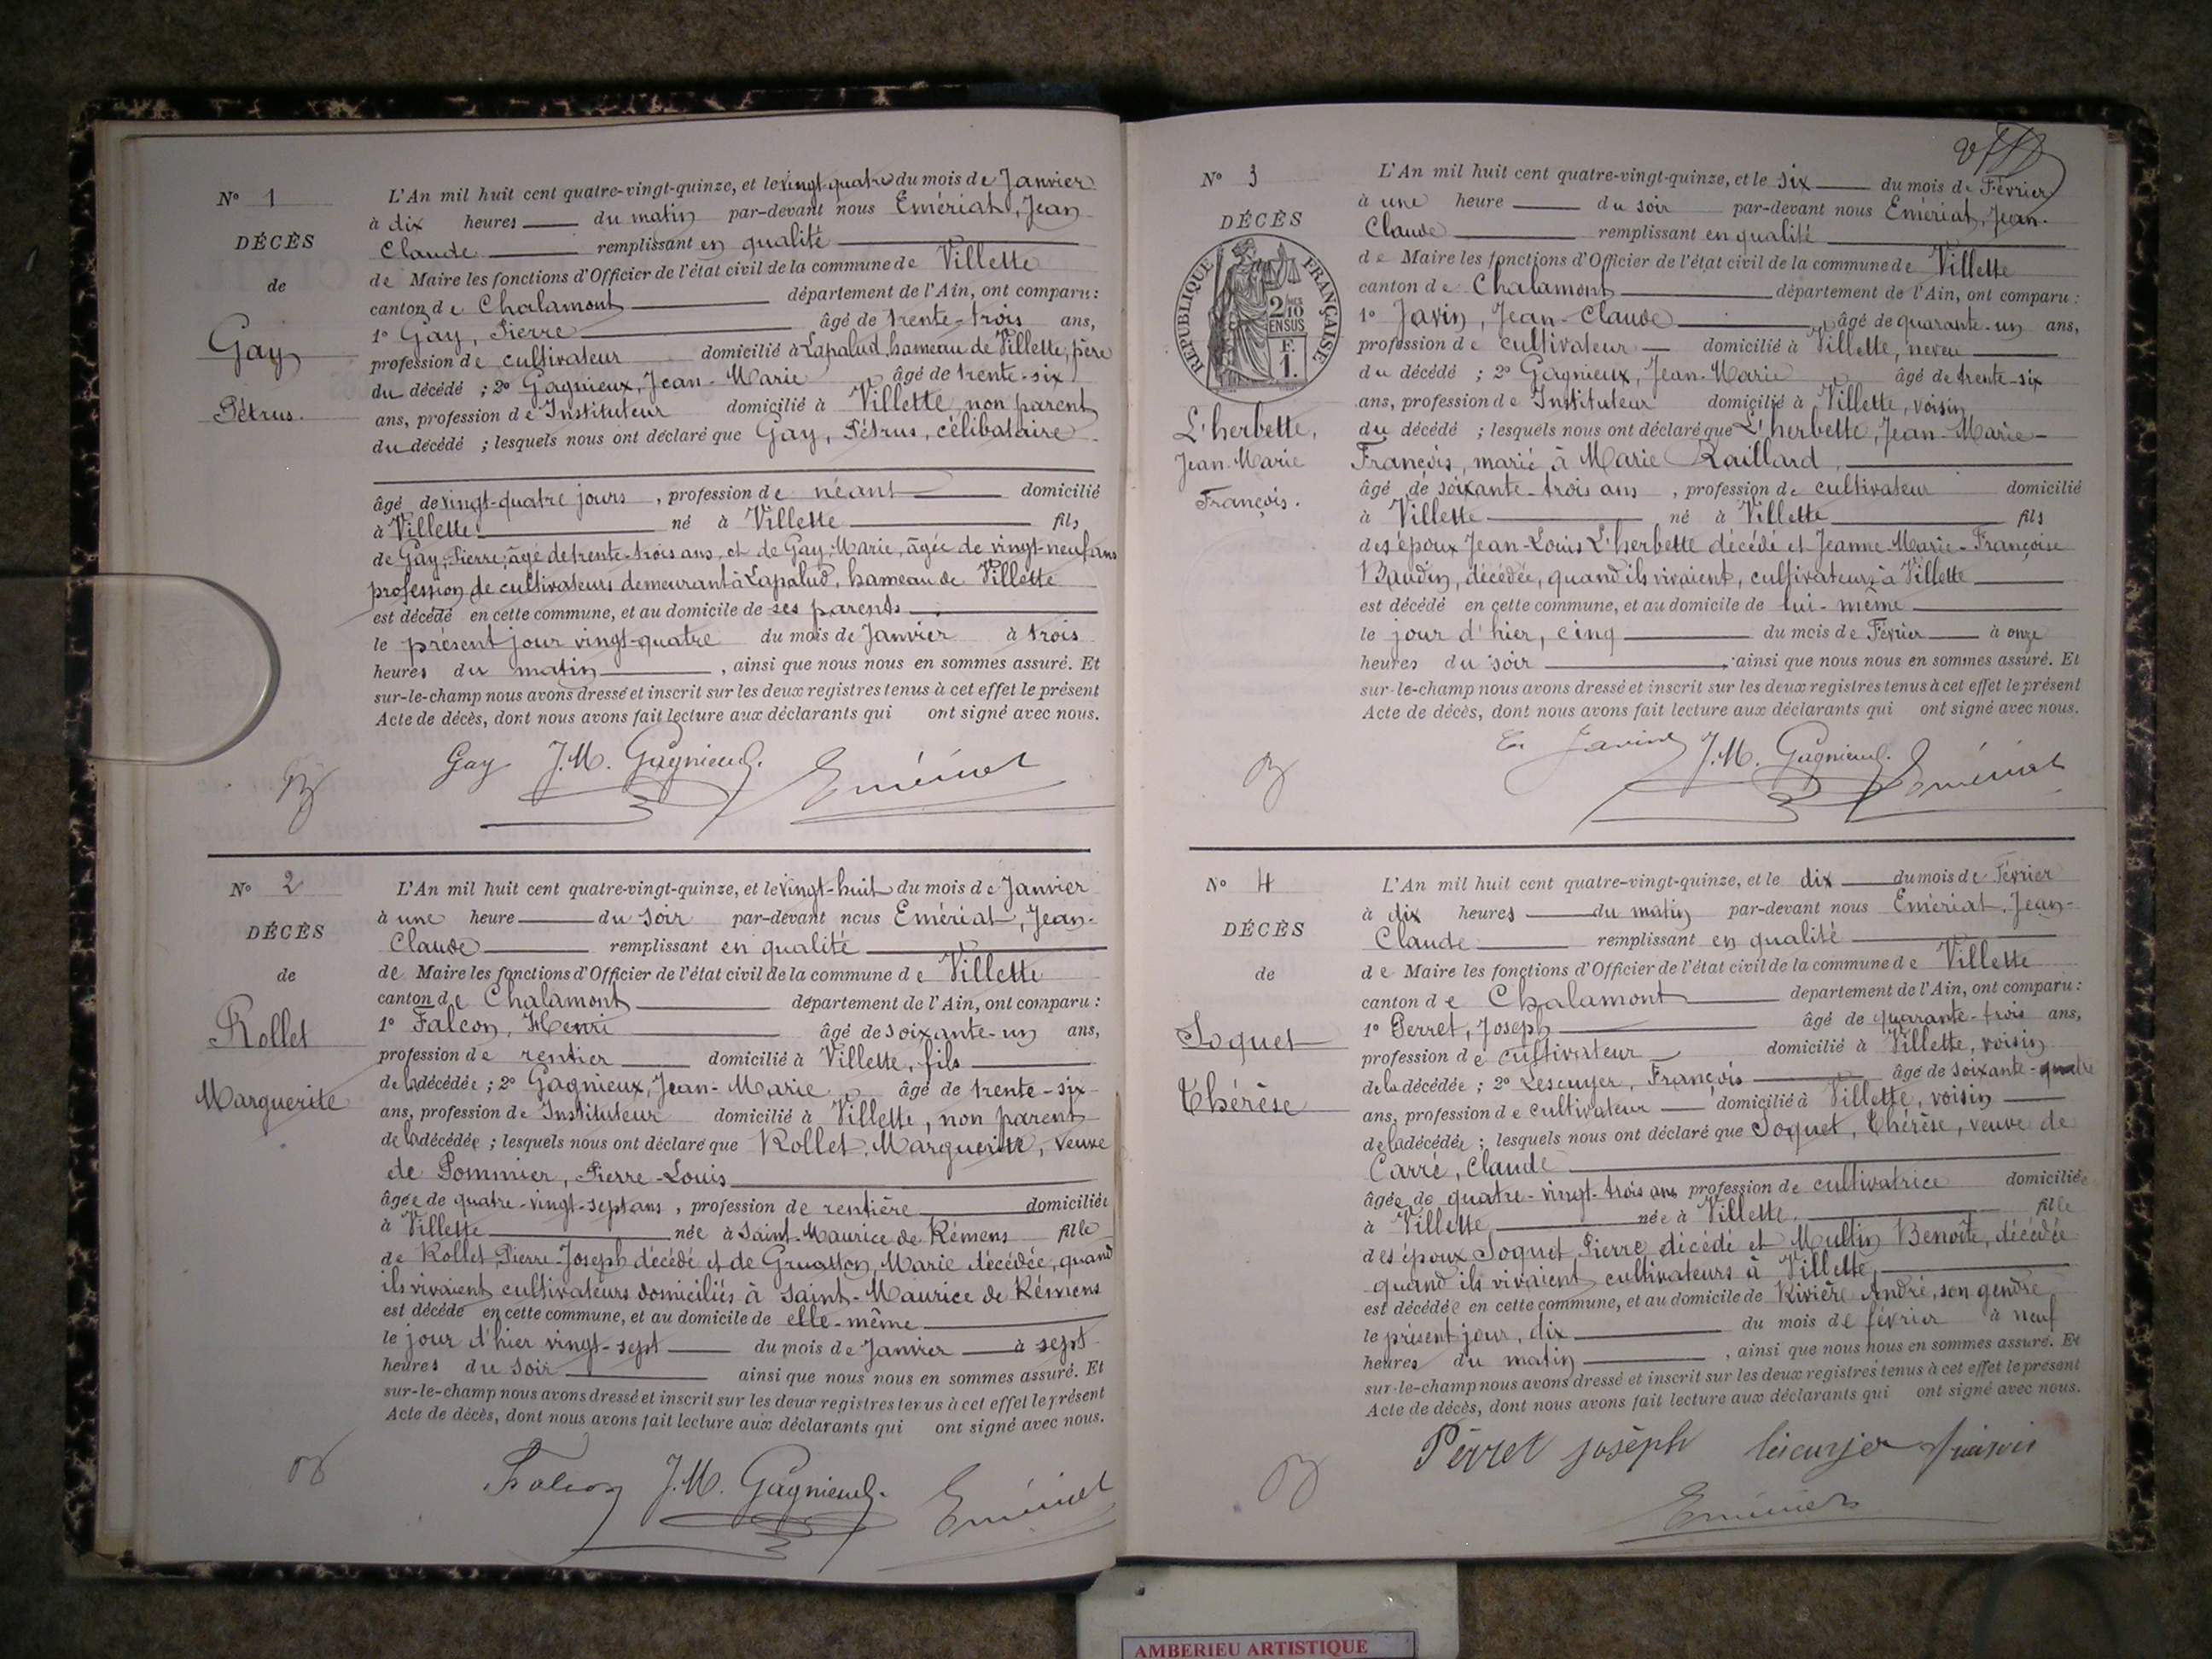 N° 1
DÉCÈS
de
Gay
Pétrus.
L'An mil huit cent quatre-vingt-quinze, et le vingt-quatre du mois de Janvier
à dix heures du matin par-devant nous Emériat, Jean
Claude remplissant en qualité
de Maire les fonctions d'Officier de l'état civil de la commune de Villette
canton de Chalamont département de l'Ain, ont comparu :
1° Gay, Pierre âgé de trente-trois ans,
profession de cultivateur domicilié à Lapalud, hameau de Villette, père
du décédé ; 2° Gagnieux, Jean-Marie âgé de trente-six
ans, profession de Instituteur domicilié à Villette, non parent
du décédé ; lesquels nous ont déclaré que Gay, Pétrus, célibataire
âgé de vingt-quatre jours, profession de néant domicilié
à Villette né à Villette fils
de Gay, Pierre, âgé de trente-trois ans, et de Gay, Marie, âgée de vingt-neuf ans
profession de cultivateurs demeurant à Lapalud, hameau de Villette
est décédé en cette commune, et au domicile de ses parents
le présent jour vingt-quatre du mois de Janvier à trois
heures du matin, ainsi que nous nous en sommes assuré. Et
sur-le-champ nous avons dressé et inscrit sur les deux registres tenus à cet effet le présent
Acte de décès, dont nous avons fait lecture aux déclarants qui ont signé avec nous.
Gay J.M. Gagnieux. Emériat
N° 2
DÉCÈS
de
Rollet
Marguerite
L'An mil huit cent quatre-vingt-quinze, et le vingt-huit du mois de Janvier
à une heure du soir par-devant nous Emériat, Jean-
Claude remplissant en qualité
de Maire les fonctions d'Officier de l'état civil de la commune de Villette
canton de Chalamont département de l'Ain, ont comparu :
1° Falcon, Henri âgé de soixante-un ans,
profession de rentier domicilié à Villette, fils
de la décédée ; 2° Gagnieux, Jean-Marie âgé de trente-six
ans, profession de Instituteur domicilié à Villette, non parent
de la décédée ; lesquels nous ont déclaré que Rollet, Marguerite, veuve
de Pommier, Pierre-Louis
âgée de quatre-vingt-sept ans, profession de rentière domiciliée
à Villette née à Saint-Maurice de Rémens fille
de Rollet Pierre-Joseph décédé et de Marie décédée, quand
ils vivaient cultivateurs domiciliés à Saint-Maurice de Rémens
est décédé en cette commune, et au domicile de elle-même
le jour d'hier vingt-sept du mois de Janvier à sept
heures du soir ainsi que nous nous en sommes assuré. Et
sur-le-champ nous avons dressé et inscrit sur les deux registres tenus à cet effet le présent
Acte de décès, dont nous avons fait lecture aux déclarants qui ont signé avec nous.
Falcon J.M. Gagnieux. Emériat
N° 3
DÉCÈS
RÉPUBLIQUE FRANÇAISE
2/10 EN SUS
F. 1.
L'herbette,
Jean-Marie
François.
L'An mil huit cent quatre-vingt-quinze, et le six du mois de Février
à une heure du soir par-devant nous Emériat, Jean-
Claude remplissant en qualité
de Maire les fonctions d'Officier de l'état civil de la commune de Villette
canton de Chalamont département de l'Ain, ont comparu :
1° Javin, Jean-Claude âgé de quarante-un ans,
profession de cultivateur domicilié à Villette, neveu
du décédé ; 2° Gagnieux, Jean-Marie âgé de trente-six
ans, profession de Instituteur domicilié à Villette, voisin
du décédé ; lesquels nous ont déclaré que L'herbette, Jean-Marie-
François, marié à Marie Raillard,
âgé de soixante-trois ans, profession de cultivateur domicilié
à Villette né à Villette fils
des époux Jean-Louis L'herbette décédé et Jeanne-Marie-Françoise
Baudin, décédée, quand ils vivaient, cultivateurs à Villette
est décédé en cette commune, et au domicile de lui-même
le jour d'hier, cinq du mois de Février à onze
heures du soir, ainsi que nous nous en sommes assuré. Et
sur-le-champ nous avons dressé et inscrit sur les deux registres tenus à cet effet le présent
Acte de décès, dont nous avons fait lecture aux déclarants qui ont signé avec nous.
Javin J.M. Gagnieux. Emériat
N° 4
DÉCÈS
de
Soquet
Thérèse
L'An mil huit cent quatre-vingt-quinze, et le dix du mois de Février
à dix heures du matin par-devant nous Emériat, Jean-
Claude remplissant en qualité
de Maire les fonctions d'Officier de l'état civil de la commune de Villette
canton de Chalamont département de l'Ain, ont comparu :
1° Perret, Joseph âgé de quarante-trois ans,
profession de cultivateur domicilié à Villette, voisin
de la décédée ; 2° Lescuyer, François âgé de soixante-quatre
ans, profession de cultivateur domicilié à Villette, voisin
de la décédée ; lesquels nous ont déclaré que Soquet, Thérèse, veuve de
Carré, Claude
âgée de quatre-vingt-trois ans profession de cultivatrice domiciliée
à Villette née à Villette fille
des époux Soquet Pierre décédé et Multin Benoîte, décédée
quand ils vivaient cultivateurs à Villette,
est décédée en cette commune, et au domicile de Rivière André, son gendre
le présent jour, dix du mois de février à neuf
heures du matin, ainsi que nous nous en sommes assuré. Et
sur-le-champ nous avons dressé et inscrit sur les deux registres tenus à cet effet le présent
Acte de décès, dont nous avons fait lecture aux déclarants qui ont signé avec nous.
Pérret joséph
Emériat
AMBERIEU ARTISTIQUE